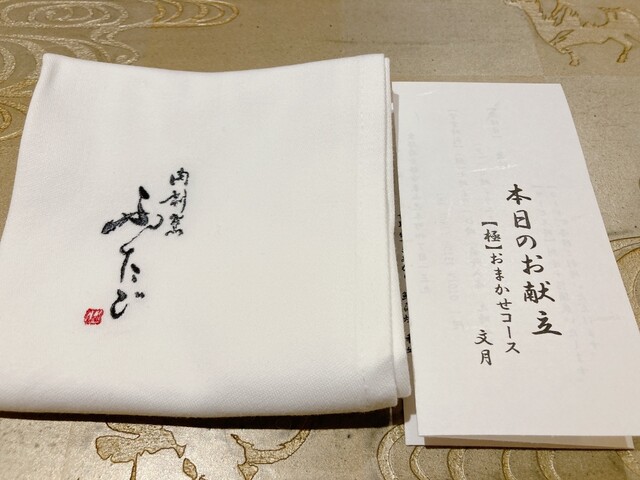 肉割烹
ふたび
本日のお献立
【極】おまかせコース
文月